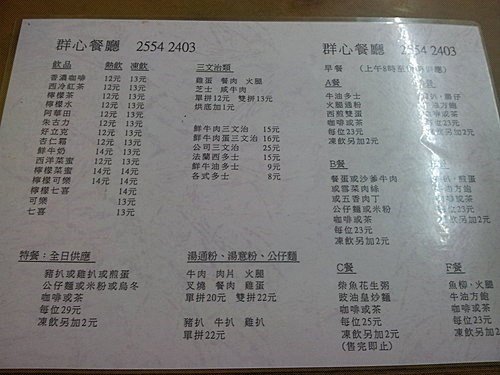 群心餐廳 2554 2403
飲品 熱飲 凍飲
香濃咖啡 12元 13元
西冷紅茶 12元 13元
檸檬茶 12元 13元
檸檬水 12元 13元
阿華田 12元 13元
朱古力 12元 13元
好立克 12元 13元
杏仁霜 12元 13元
鮮牛奶 14元 14元
西洋菜蜜 12元 13元
檸檬菜蜜 14元 14元
檸檬可樂 14元 14元
檸檬七喜 14元
可樂 13元
七喜 13元
三文治類
雞蛋 餐肉 火腿
芝士 咸牛肉
單拼12元 雙拼13元
烘底加1元
鮮牛肉三文治 15元
鮮牛肉蛋三文治 16元
公司三文治 25元
法蘭西多士 15元
鮮牛油多士 9元
各式多士 8元
特餐：全日供應
豬扒或雞扒或煎蛋
公仔麵或米粉或烏冬
咖啡或茶
每位29元
凍飲另加2元
湯通粉、湯意粉、公仔麵
牛肉 肉片 火腿
叉燒 餐肉 雞蛋
單拼20元 雙拼22元
豬扒 牛扒 雞扒
單拼22元
群心餐廳 2554 2403
早餐 (上午8時至
供應)
A餐
牛油多士
火腿通粉
西煎雙蛋
咖啡或茶
每位23元
凍飲另加2元
B餐
餐蛋或沙爹牛肉
或雪菜肉絲
或五香肉丁
公仔麵或米粉
咖啡或茶
每位23元
凍飲另加2元
C餐
柴魚花生粥
豉油皇炒麵
咖啡或茶
每位25元
凍飲另加2元
(售完即止)
腸仔
方飽
或茶
23元
另加2元
煎蛋
牛肉方飽
咖啡或茶
每位23元
凍飲另加2元
F餐
魚柳，火腿
牛油方飽
咖啡或茶
每位23元
凍飲另加2元